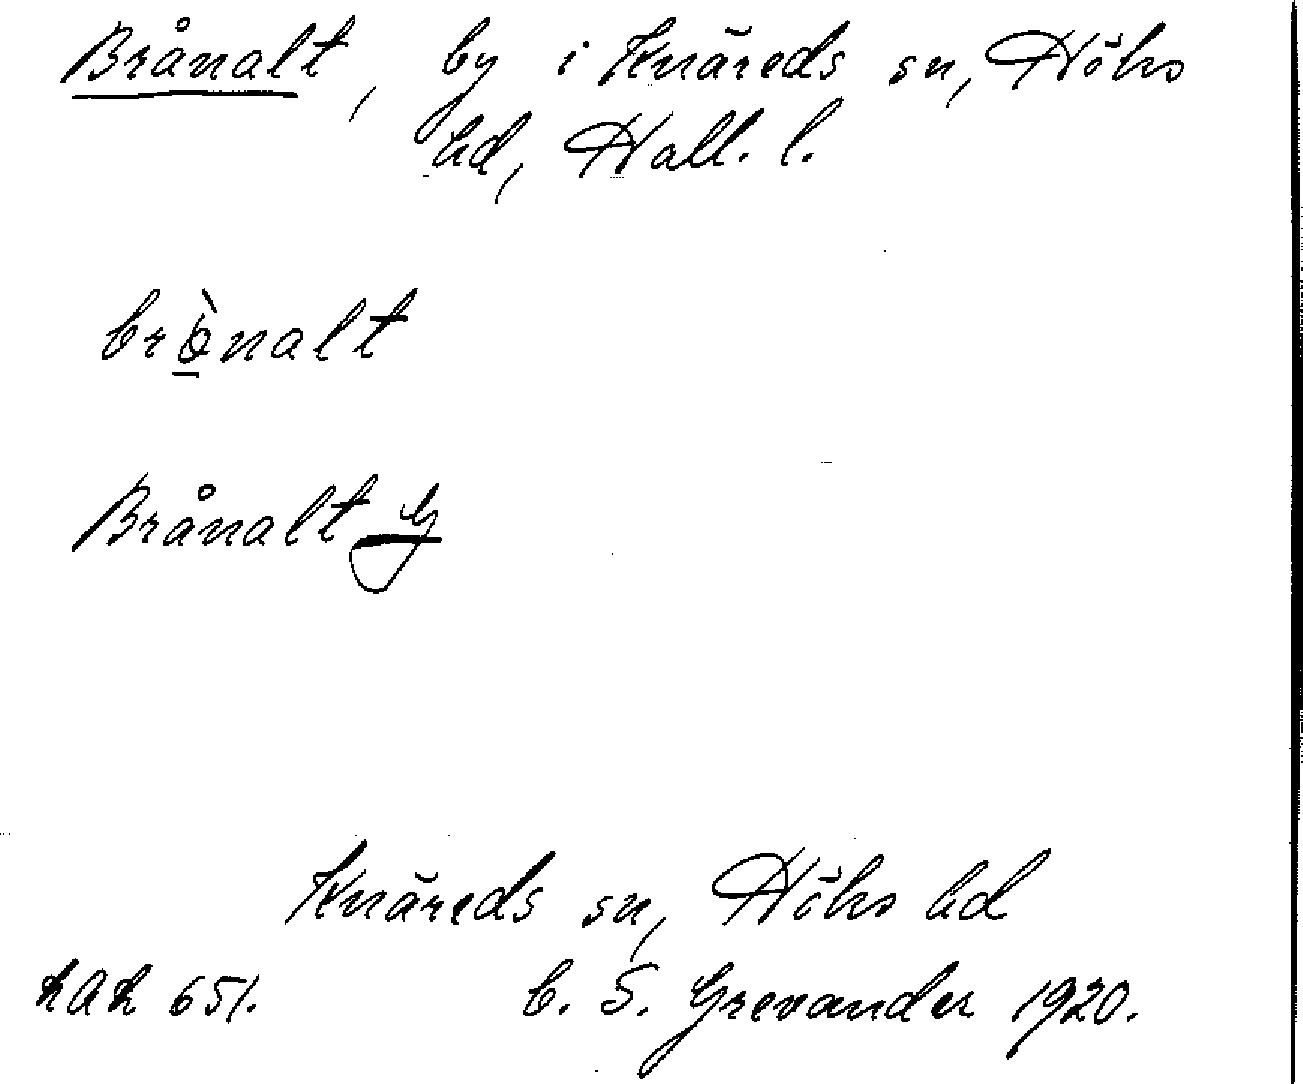 Brånalt, by i Knäreds sn, Höks
hd, Hall. l.
brò̠nalt
Brånalt G
Knäreds sn, Höks hd
651. C. S. Grevander 1920.